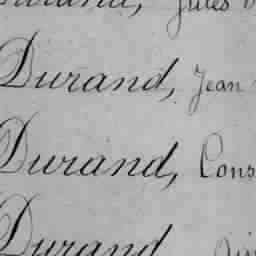 Durand, Jules
Durand, Jean
Durand, Cons
Durand